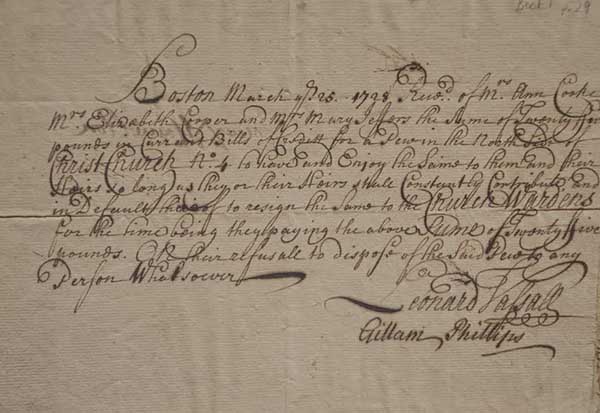 Book 1 p. 29
Boston March ye 25. 1728 Recd. of Mrs Ann Cooke
Mrs Elizabeth Roper and Mrs Mary Jeffers the Sume of Twenty five
pounds in Currant Bills of Credit for a Pew in the North Side of
Christ Church No. 4 to have and Enjoy the Same to them and their
Heirs so long as they or their Heirs shall Constantly Contribute and
in Default thereof to resign the Same to the Church Wardens
for the time being they paying the above Sume of Twenty five
pounds. Or their refusall to dispose of the Said Pew to any
Person Whatsoever
Leonard Vassall
Gillam Phillips